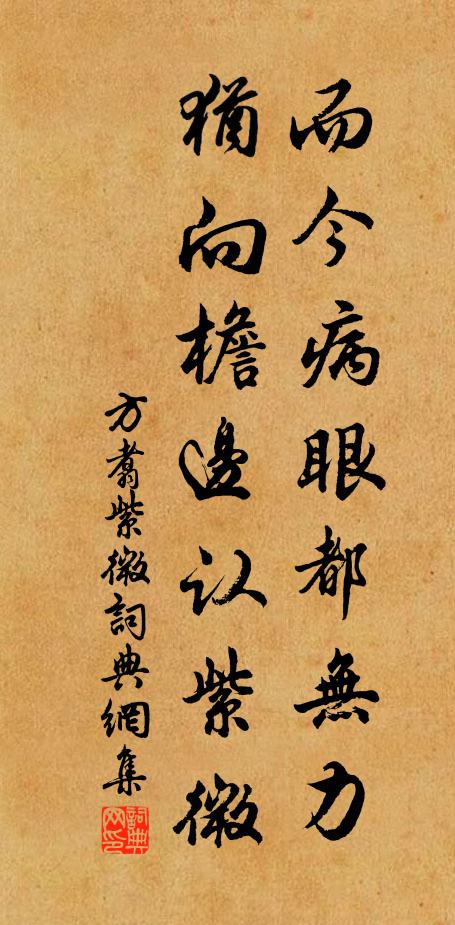 而今病眼都無力
猶向檐邊认紫微
方翥紫微詞典網集
詞典网印